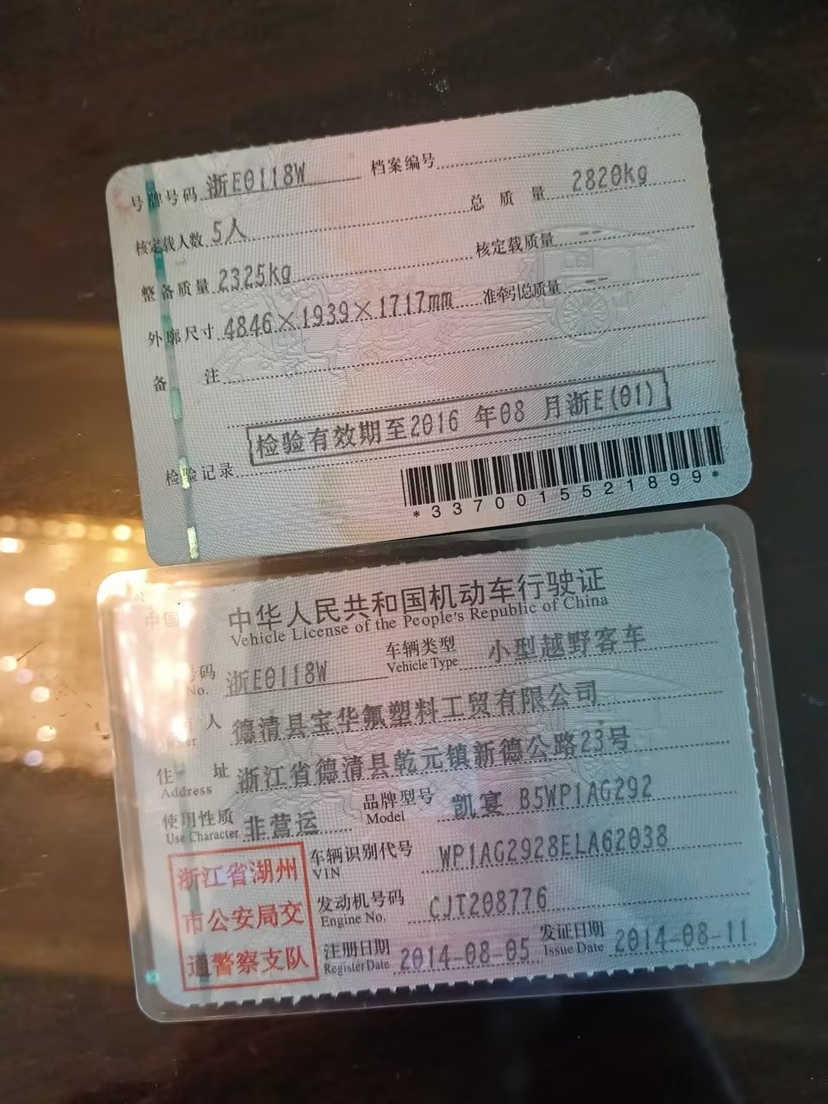 号牌号码 浙E0118W 档案编号
核定载人数 5人 总质量 2820kg
整备质量 2325kg 核定载质量 --
外廓尺寸 4846×1939×1717mm 准牵引总质量 --
备注
检验有效期至2016 年08 月浙E(01)
检验记录
*3370015521899*
中国
中华人民共和国机动车行驶证
Vehicle License of the People's Republic of China
号码 浙E0118W 车辆类型 小型越野客车
No. Vehicle Type
人 德清县宝华氟塑料工贸有限公司
住址 浙江省德清县乾元镇新德公路23号
Address
使用性质 非营运 品牌型号 凯宴 B5WP1AG292
Use Character Model
车辆识别代号 WP1AG2928ELA62038
VIN
发动机号码 CJT208776
Engine No.
注册日期 2014-08-05 发证日期 2014-08-11
Register Date Issue Date
浙江省湖州
市公安局交
通警察支队